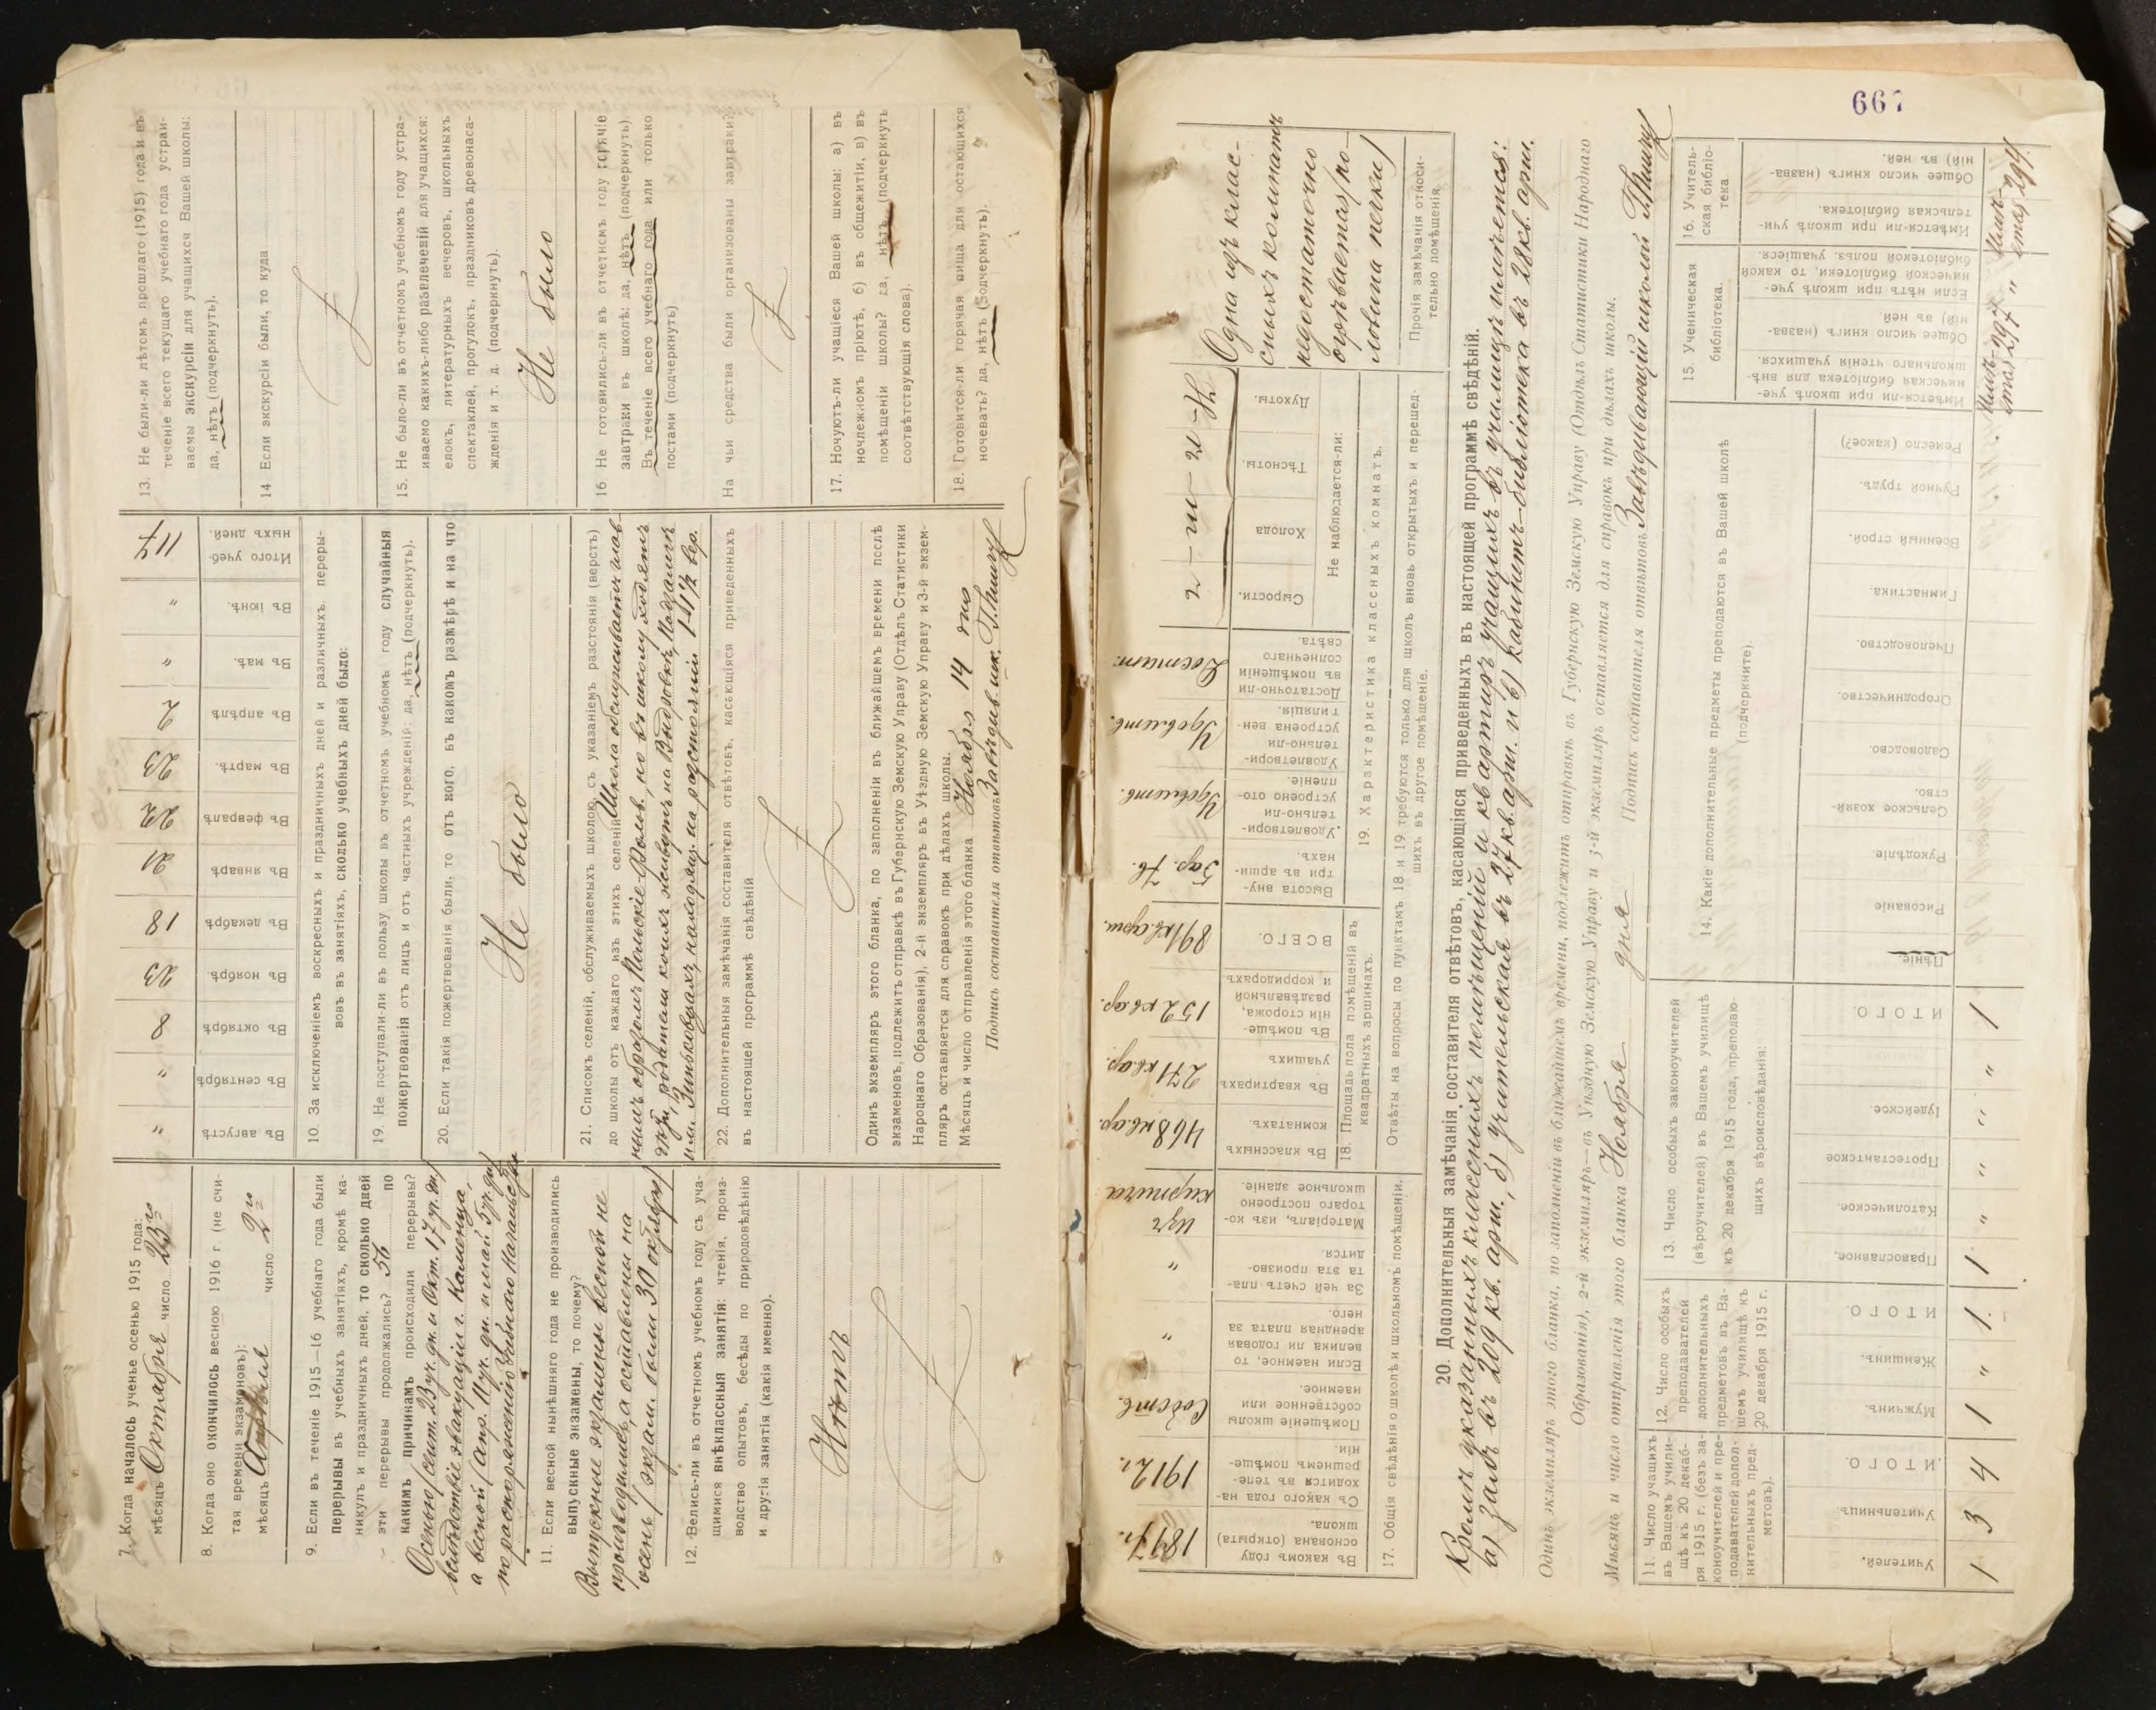 7. Когда началось ученье осенью 1915 года:
мѣсяцъ Октября число 23го
8. Когда оно окончилось весною 1916 г. (не счи-
тая времени экзаменовъ):
мѣсяцъ Апрѣля число 2го
9. Если въ теченіе 1915—16 учебнаго года были
перерывы въ учебныхъ занятіяхъ, кромѣ ка-
никулъ и праздничныхъ дней, то сколько дней
эти перерывы продолжались? 56 по
какимъ причинамъ происходили перерывы?
Осенью (сент. 23 уч. дн. и Окт. 17 уч. дн.)
вслѣдствіе эвакуаціи г. Каменца,
а весной (апр. 11 уч. дн. и май 5 уч. дн.)
по распоряженію Учебнаго Начальства
11. Если весной нынѣшняго года не производились
выпускные экзамены, то почему?
Выпускные экзамены весной не
производились, а оставлены на
осень (экзам. были 30 октября)
12. Велись-ли въ отчетномъ учебномъ году съ уча-
щимися внѣклассныя занятія: чтенія, произ-
водство опытовъ, бесѣды по природовѣдѣнію
и другія занятія (какія именно).
Нѣтъ
Въ августѣ
Въ сентябрѣ
Въ октябрѣ
Въ ноябрѣ
Въ декабрѣ
Въ январѣ
Въ февралѣ
Въ мартѣ.
Въ апрѣлѣ
Въ маѣ.
Въ іюнѣ.
Итого учеб-
ныхъ дней.
" " 8 23 18 21 22 23 2 " " 117
10. За исключеніемъ воскресныхъ и праздничныхъ дней и различныхъ переры-
вовъ въ занятіяхъ, сколько учебныхъ дней было:
19. Не поступали-ли въ пользу школы въ отчетномъ учебномъ году случайныя
пожертвованія отъ лицъ и отъ частныхъ учрежденій: да, нѣтъ (подчеркнуть).
20. Если такія пожертвованія были, то отъ кого, въ какомъ размѣрѣ и на что
Не было
21. Списокъ селеній, обслуживаемыхъ школою, съ указаніемъ разстоянія (верстъ)
до школы отъ каждаго изъ этихъ селеній Школа обслуживаетъ глав-
нымъ образомъ Польскіе Фольв., но въ школу ходятъ
дѣти, родители коихъ живутъ на Видровкѣ, Подзамчѣ
или Зиньковцахъ находящ. на разстояніи 1-1½ вер.
22. Дополнительныя замѣчанія составителя отвѣтовъ, касающіяся приведенныхъ
въ настоящей программѣ свѣдѣній
Одинъ экземпляръ этого бланка, по заполненіи въ ближайшемъ времени послѣ
экзаменовъ, подлежитъ отправкѣ въ Губернскую Земскую Управу (Отдѣлъ Статистики
Народнаго Образованія), 2-й экземпляръ въ Уѣздную Земскую Управу и 3-й экзем-
пляръ оставляется для справокъ при дѣлахъ школы.
Мѣсяцъ и число отправленія этого бланка Ноября 14 дня
Подпись составителя отвѣтовъ Завѣдыв. шк.
13. Не были-ли лѣтомъ прошлаго (1915) года и въ
теченіе всего текущаго учебнаго года устраи-
ваемы экскурсіи для учащихся Вашей школы:
да, нѣтъ (подчеркнуть).
14 Если экскурсіи были, то куда
15. Не было-ли въ отчетномъ учебномъ году устра-
иваемо какихъ-либо развлеченій для учащихся:
елокъ, литературныхъ вечеровъ, школьныхъ
спектаклей, прогулокъ, праздниковъ древонаса-
жденія и т. д. (подчеркнуть).
Не было
16 Не готовились-ли въ отчетномъ году горячіе
завтраки въ школѣ: да, нѣтъ (подчеркнуть).
Въ теченіе всего учебнаго года или только
постами (подчеркнуть)
На чьи средства были организованы завтраки
17. Ночуютъ-ли учащіеся Вашей школы: а) въ
ночлежномъ пріютѣ, б) въ общежитіи, в) въ
помѣщеніи школы? да, нѣтъ (подчеркнуть
соотвѣтствующія слова).
18. Готовится-ли горячая пища для остающихся
ночевать? да, нѣтъ (подчеркнуть).
667
1897 г. 1912 г. Собств. " " Изъ кирпича
Въ какомъ году
основана (открыта)
школа.
Съ какого года на-
ходится въ тепе-
решнемъ помѣще-
ніи.
Помѣщеніе школы
собственное или
наемное.
Если наемное, то
велика ли годовая
арендная плата за
него.
За чей счетъ пла-
та эта произво-
дится
Матеріалъ, изъ ко-
тораго построено
школьное зданіе.
17. Общія свѣдѣнія о школѣ и школьномъ помѣщеніи.
468 кв. ар. 271 кв. ар. 152 кв. ар. 891 кв. арш. 5 ар. 7 в. Удовлетв. Удовлетв. Достат.
Въ классныхъ
комнатахъ.
Въ квартирахъ
учащихъ
Въ помѣще-
ніи сторожа,
раздѣвальной
и корридорахъ
ВСЕГО.
Высота вну-
три въ арши-
нахъ.
Удовлетвори-
тельно-ли
устроено ото-
пленіе.
Удовлетвори-
тельно-ли
устроена вен-
тиляція.
Достаточно-ли
въ помѣщеніи
солнечнаго
свѣта.
18. Площадь пола помѣщеній въ
квадратныхъ аршинахъ.
Сырости.
Холода
Тѣсноты.
Духоты.
Не наблюдается-ли:
19. Характеристика классныхъ комнатъ.
Одна изъ клас-
сныхъ комнатъ
недостаточно
согрѣвается (по-
ловина печки)
Прочія замѣчанія относи-
тельно помѣщенія.
Отвѣты на вопросы по пунктамъ 18 и 19 требуются только для школъ вновь открытыхъ и перешед-
шихъ въ другое помѣщеніе.
20. Дополнительныя замѣчанія составителя отвѣтовъ, касающіяся приведенныхъ въ настоящей программѣ свѣдѣній.
Кромѣ указанныхъ классныхъ помѣщеній и квартиръ учащихъ въ училищѣ имѣется:
а) залъ въ 209 кв. арш., б) учительская въ 27 кв. арш. и в) кабинетъ-библіотека въ 28 кв. арш.
Одинъ экземпляръ этого бланка, по заполненіи въ ближайшемъ времени, подлежитъ отправкѣ въ Губернскую Земскую Управу (Отдѣлъ Статистики Народнаго
Образованія), 2-й экземпляръ—въ Уѣздную Земскую Управу и 3-й экземпляръ оставляется для справокъ при дѣлахъ школы.
Мѣсяцъ и число отправленія этого бланка Ноября дня Подпись составителя отвѣтовъ Завѣдывающій школой
11. Число учащихъ
въ Вашемъ учили-
щѣ къ 20 декаб-
ря 1915 г. (безъ за-
коноучителей и пре-
подавателей допол-
нительныхъ пред-
метовъ).
Учителей.
Учительницъ.
ИТОГО.
1 3 4
12. Число особыхъ
преподавателей
дополнительныхъ
предметовъ въ Ва-
шемъ училищѣ къ
20 декабря 1915 г.
Мужчинъ.
Женщинъ.
ИТОГО
1 " 1.
13. Число особыхъ законоучителей
(вѣроучителей) въ Вашемъ училищѣ
къ 20 декабря 1915 года, преподаю-
щихъ вѣроисповѣданія:
Православное.
Католическое.
Протестантское
Іудейское.
ИТОГО.
1 " " " " 1
14. Какіе дополнительные предметы преподаются въ Вашей школѣ
(подчеркните).
Пѣніе.
Рисованіе
Рукодѣліе.
Сельское хозяй-
ство.
Садоводство.
Огородничество.
Пчеловодство.
Гимнастика.
Военный строй.
Ручной трудъ.
Ремесло (какое?)
15. Ученическая
библіотека.
Имѣется-ли при школѣ уче-
ническая библіотека для внѣ-
школьнаго чтенія учащихся.
Общее число книгъ (назва-
ній) въ ней.
Если нѣтъ при школѣ уче-
нической библіотеки, то какой
библіотекой польз. учащіеся.
Имѣ-
ется 297 "
16. Учитель-
ская библіо-
тека
Имѣется-ли при школѣ учи-
тельская библіотека.
Общее число книгъ (назва-
ній) въ ней.
Имѣ-
ется 294.